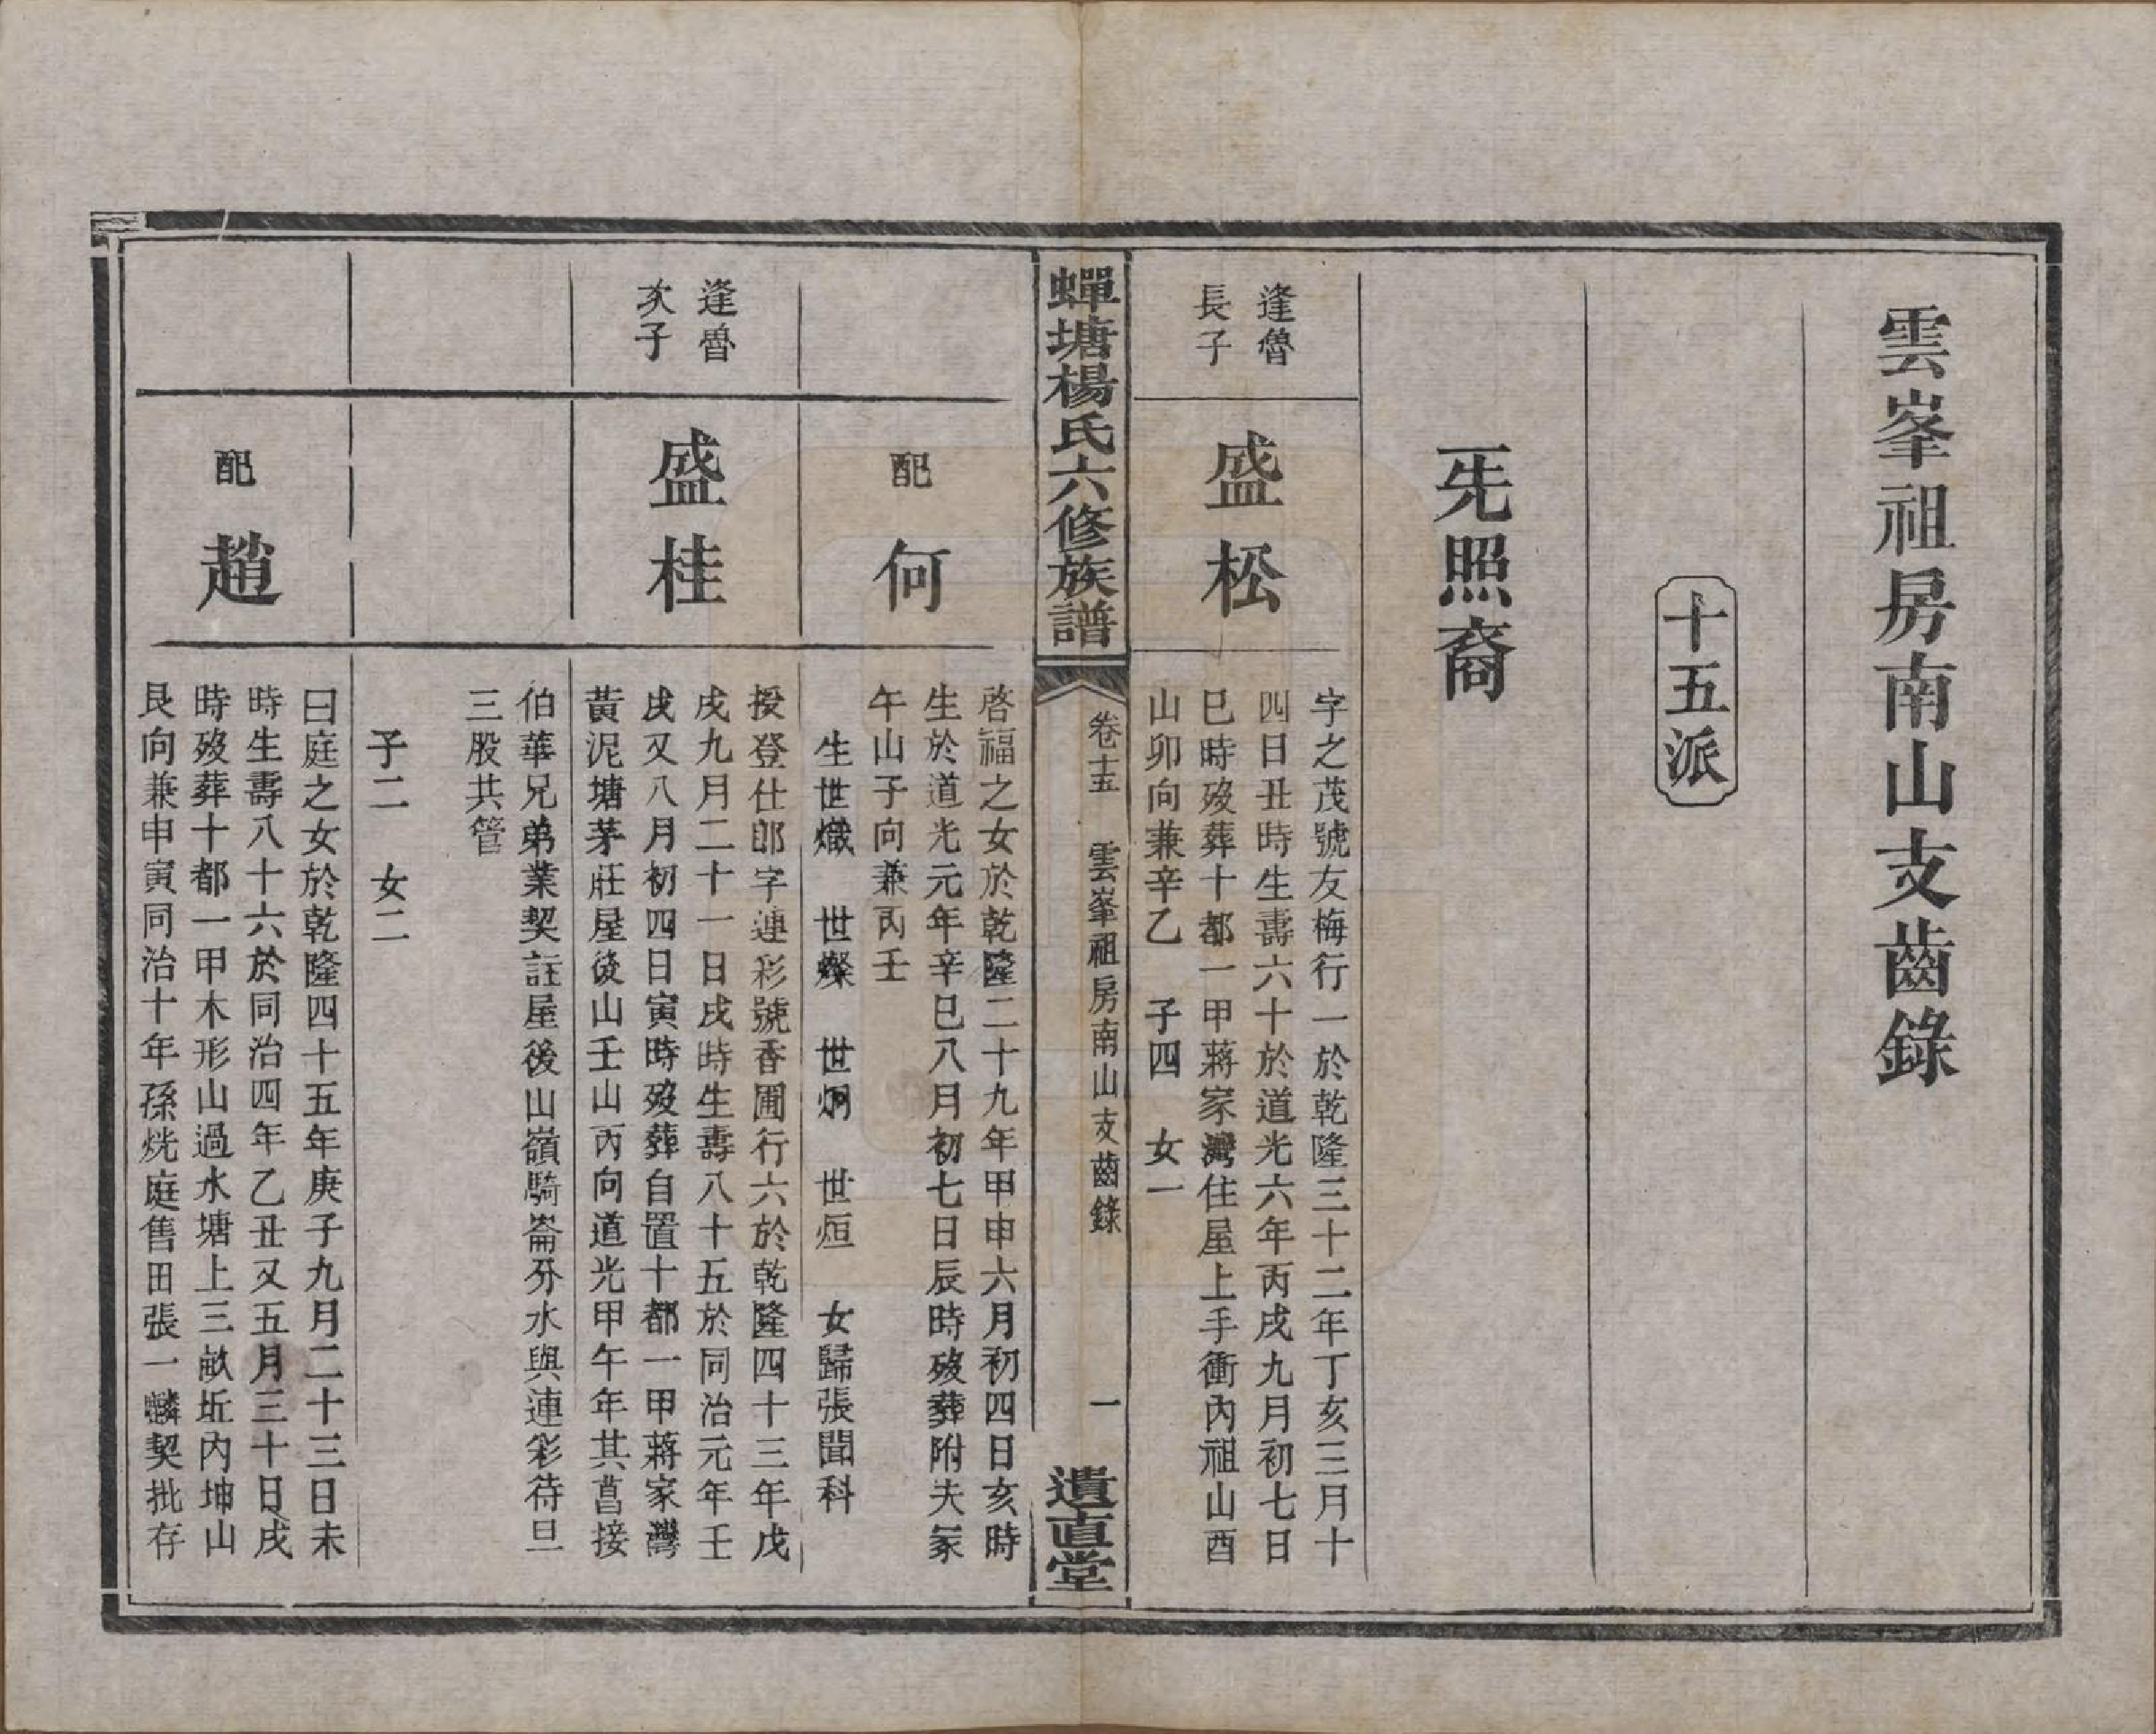 雲峯祖房南山支齒錄
十五派
旡照裔
逢魯
長子
盛松
字之茂號友梅行一於乾隆三十二年丁亥三月十
四日丑時生壽六十於道光六年丙戌九月初七日
巳時歿葬十都一甲蔣家灣住屋上手衝內祖山酉
山卯向兼辛乙　子四　女一
蟬塘楊氏六修族譜
卷十五　雲峯祖房南山支齒錄　一
遺直堂
配何
啓福之女於乾隆二十九年甲申六月初四日亥時
生於道光元年辛巳八月初七日辰時歿葬附夫冢
午山子向兼丙壬
生世熾　世燦　世炯　世烜　女歸張聞科
逢魯
次子
盛桂
授登仕郎字連彩號香圃行六於乾隆四十三年戊
戌九月二十一日戌時生壽八十五於同治元年壬
戌又八月初四日寅時歿葬自置十都一甲蔣家灣
黃泥塘茅莊屋後山壬山丙向道光甲午年其菖接
伯華兄弟業契註屋後山嶺騎崙分水與連彩待旦
三股共管
子二　女二
配趙
曰庭之女於乾隆四十五年庚子九月二十三日未
時生壽八十六於同治四年乙丑又五月三十日戌
時歿葬十都一甲木形山過水塘上三畝坵內坤山
艮向兼申寅同治十年孫烑庭售田張一麟契批存